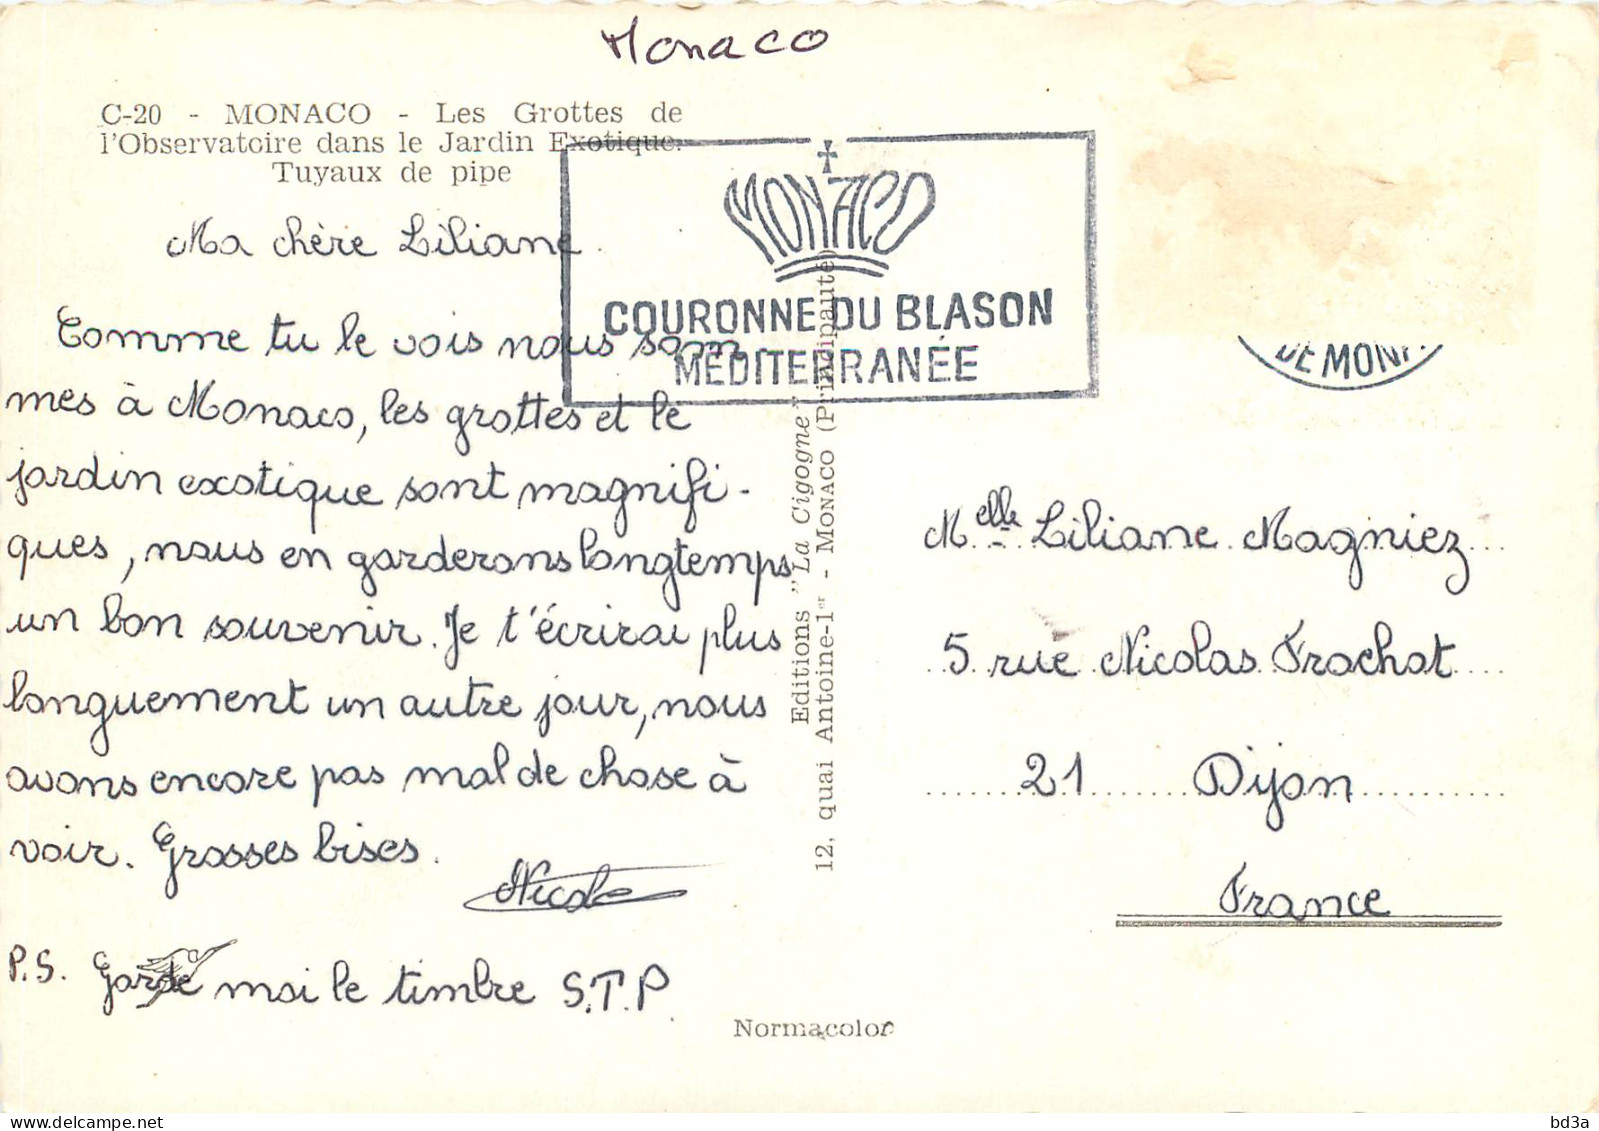 Monaco
C-20 - MONACO - Les Grottes de
l'Observatoire dans le Jardin Exotique.
Tuyaux de pipe
MONACO
COURONNE DU BLASON
MÉDITERRANÉE
DE MON
Ma chère Liliane
Comme tu le vois nous som
mes à Monaco, les grottes et le
jardin exotique sont magnifi-
ques, nous en garderons longtemps
un bon souvenir. Je t'écrirai plus
longuement un autre jour, nous
avons encore pas mal de chose à
voir. Grosses bises.
Nicole
P.S. Garde moi le timbre S.T.P
Editions "La Cigogne"
12, quai Antoine-1er - MONACO (Principauté)
Melle Liliane Magniez
5 rue Nicolas Frochot
21 Dijon
France
Normacolor
delcampe.net
bd3a